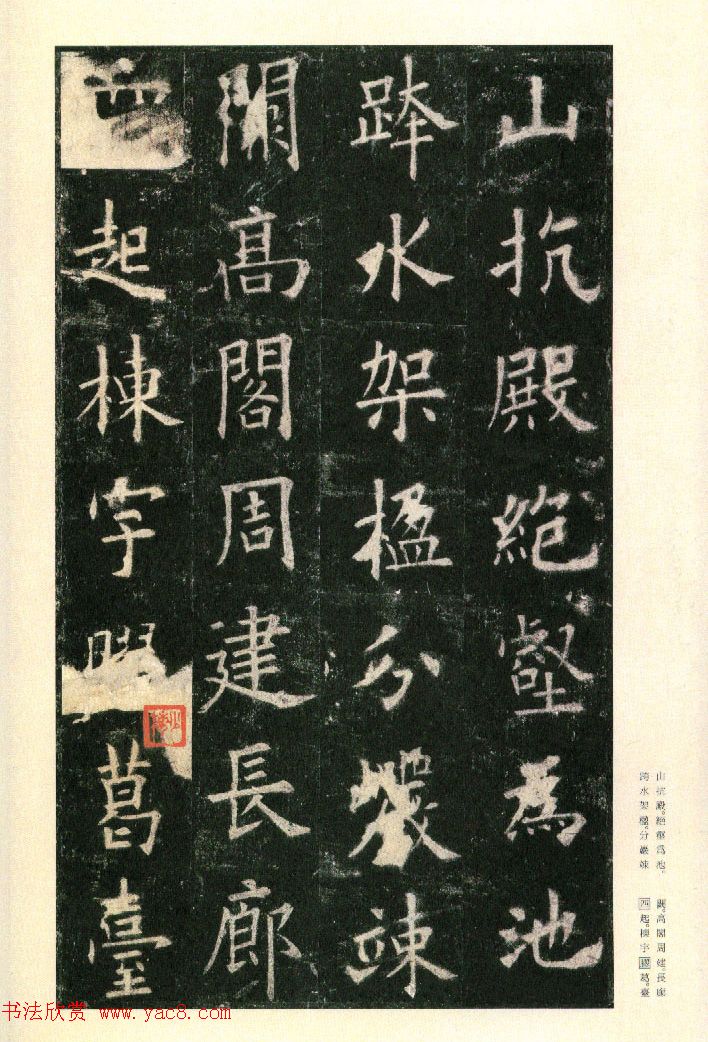 山抗殿絶壑為池
跨水架楹分巖竦
闕高閣周建長廊
四起棟宇膠葛臺
山抗殿。絶壑為池。
跨水架楹。分巖竦
闕。高閣周建。長廊
四起。棟宇膠葛。臺
书法欣赏 www.yac8.com